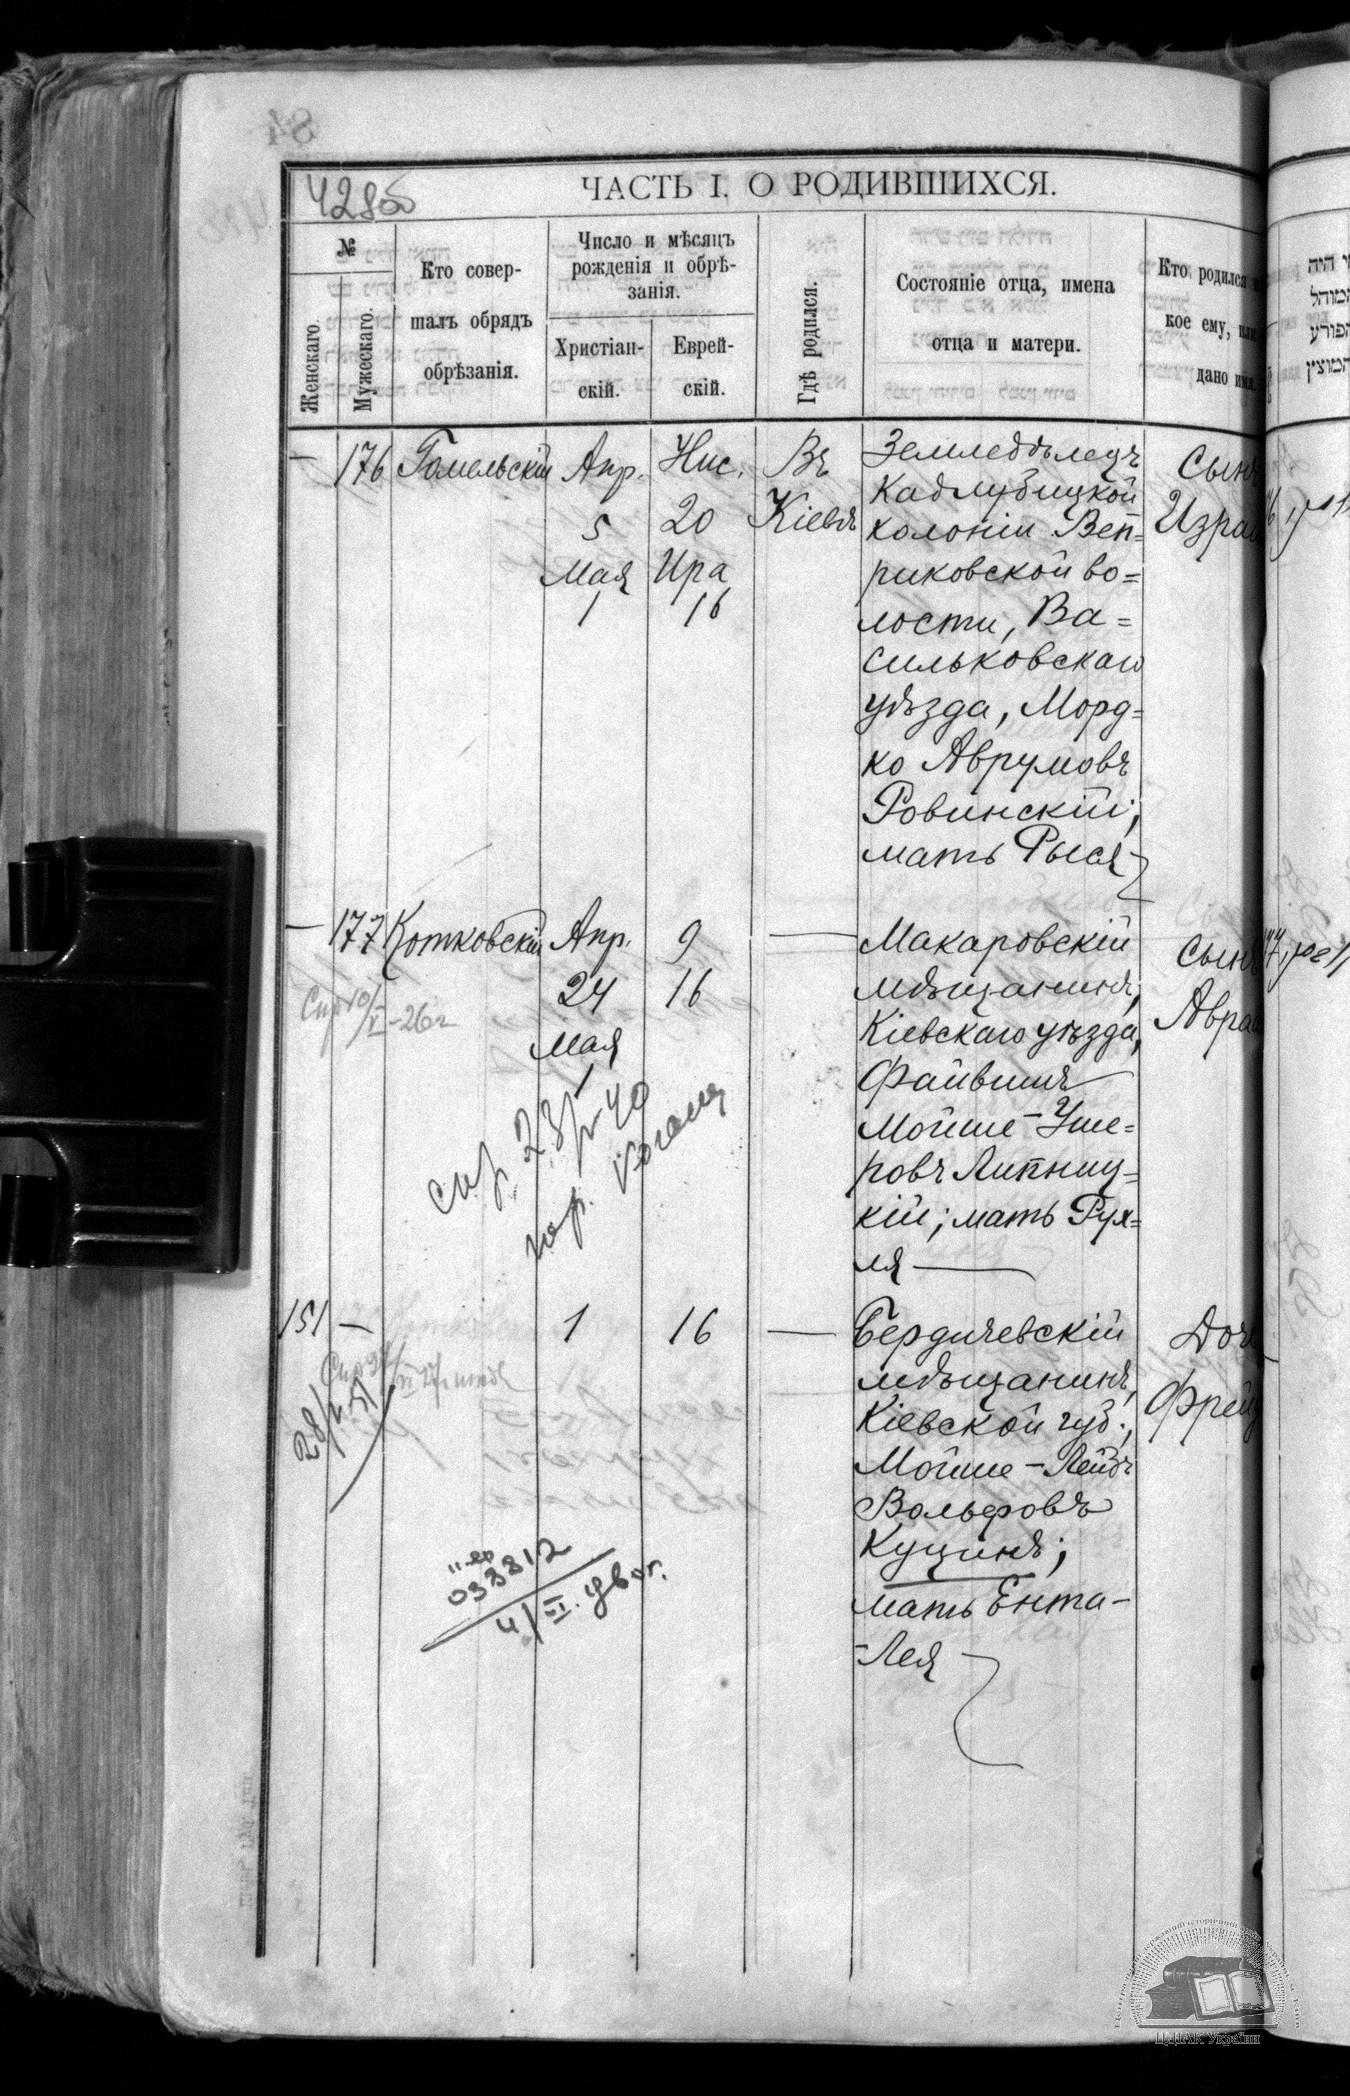 428об
ЧАСТЬ I. О РОДИВШИХСЯ.
№
Женскаго.
Мужескаго.
Кто совер-
шалъ обрядъ
обрѣзанія.
Число и мѣсяцъ
рожденія и обрѣ-
занія.
Христіан-
скій.
Еврей-
скій.
Гдѣ родился.
Состояніе отца, имена
отца и матери.
Кто родился
кое ему, или
дано имя.
— 176 Гомельскій
Апр.
5
Мая
1
Нис.
20
Ира
16
Въ
Кіевѣ
Земледѣлецъ
Кадлубицкой
колоніи Веп-
риковской во=
лости, Ва=
сильковскаго
уѣзда, Морд=
ко Аврумовъ
Ровинскій;
мать Рыся
Сынъ
Изра
— 177 Котковскій
Апр.
24
Мая
1
9
16
—
Макаровскій
мѣщанинъ,
Кіевскаго уѣзда,
Файвишъ
Мойше-Уше=
ровъ Липниц=
кій; мать Рух=
ля —
Сынъ
Авра
-26г
151 —
1
16
—
Бердичевскій
мѣщанинъ,
Кіевской губ.,
Мойше-Лейбъ
Вольфовъ
Куцинъ;
мать Ента-
-Лея
Доч
Фрей
033812
היה
המוהל
הפורע
המוצץ
ЦДІАК України